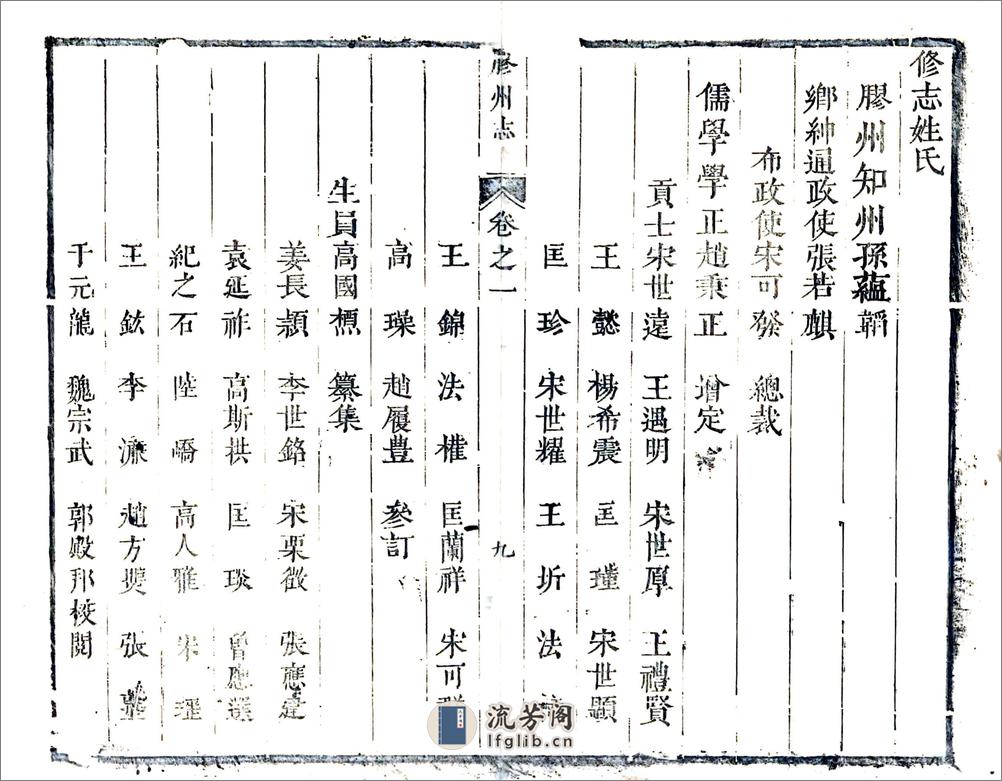 修志姓氏
膠州知州孫蘊韜
鄉紳通政使張若麒
布政使宋可發 總裁
儒學學正趙秉正 增定
貢士宋世遠 王遇明 宋世厚 王禮賢
王懿 楊希震 匡瑾 宋世顯
匡珍 宋世耀 王圻 法
膠州志 卷之一 九
王錦 法樟 匡蘭祥 宋可
高璪 趙履豊 參訂
生員高國標 纂集
姜長穎 李世銘 宋栗徵 張應建
袁延祚 高斯拱 匡琰 曾應選
紀之石 陸嶠 高人雅 宋瑆
王鈜 李濂 趙方奘 張
于元龍 魏宗武 郭殿邦校閱
流芳閣
lfglib.cn